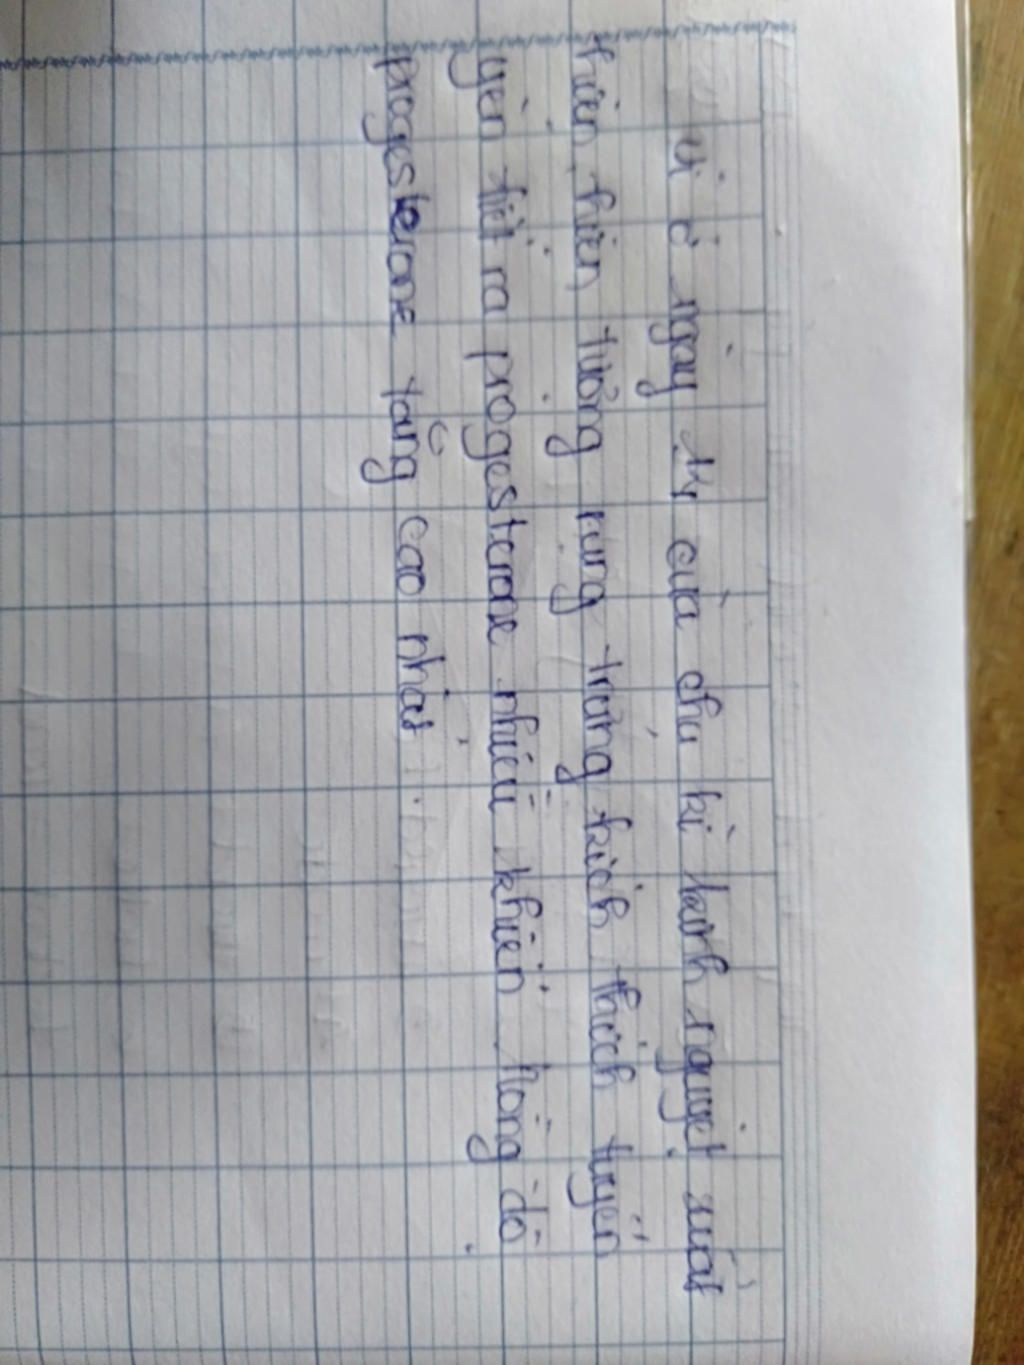 vì ở ngày 14 của chu kì kinh nguyệt xuất
hiện hiện tường rụng trứng kích thích tuyến
yên tiết ra progesterone nhiều khiến nồng độ
progesterone tăng cao nhất.